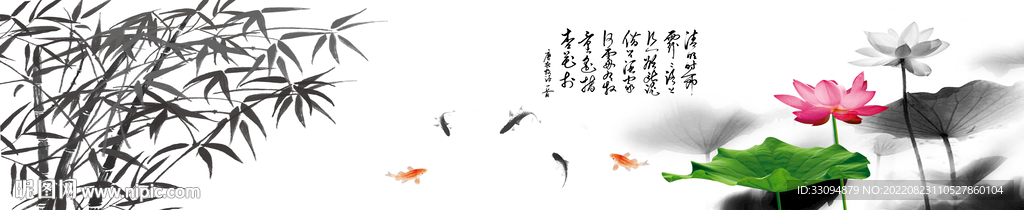 清明時節
雨紛紛路上
行人欲斷魂
借問酒家
何處有牧
童遙指
杏花村
昵图网 www.nipic.com
ID:33094879 NO:20220823110527860104